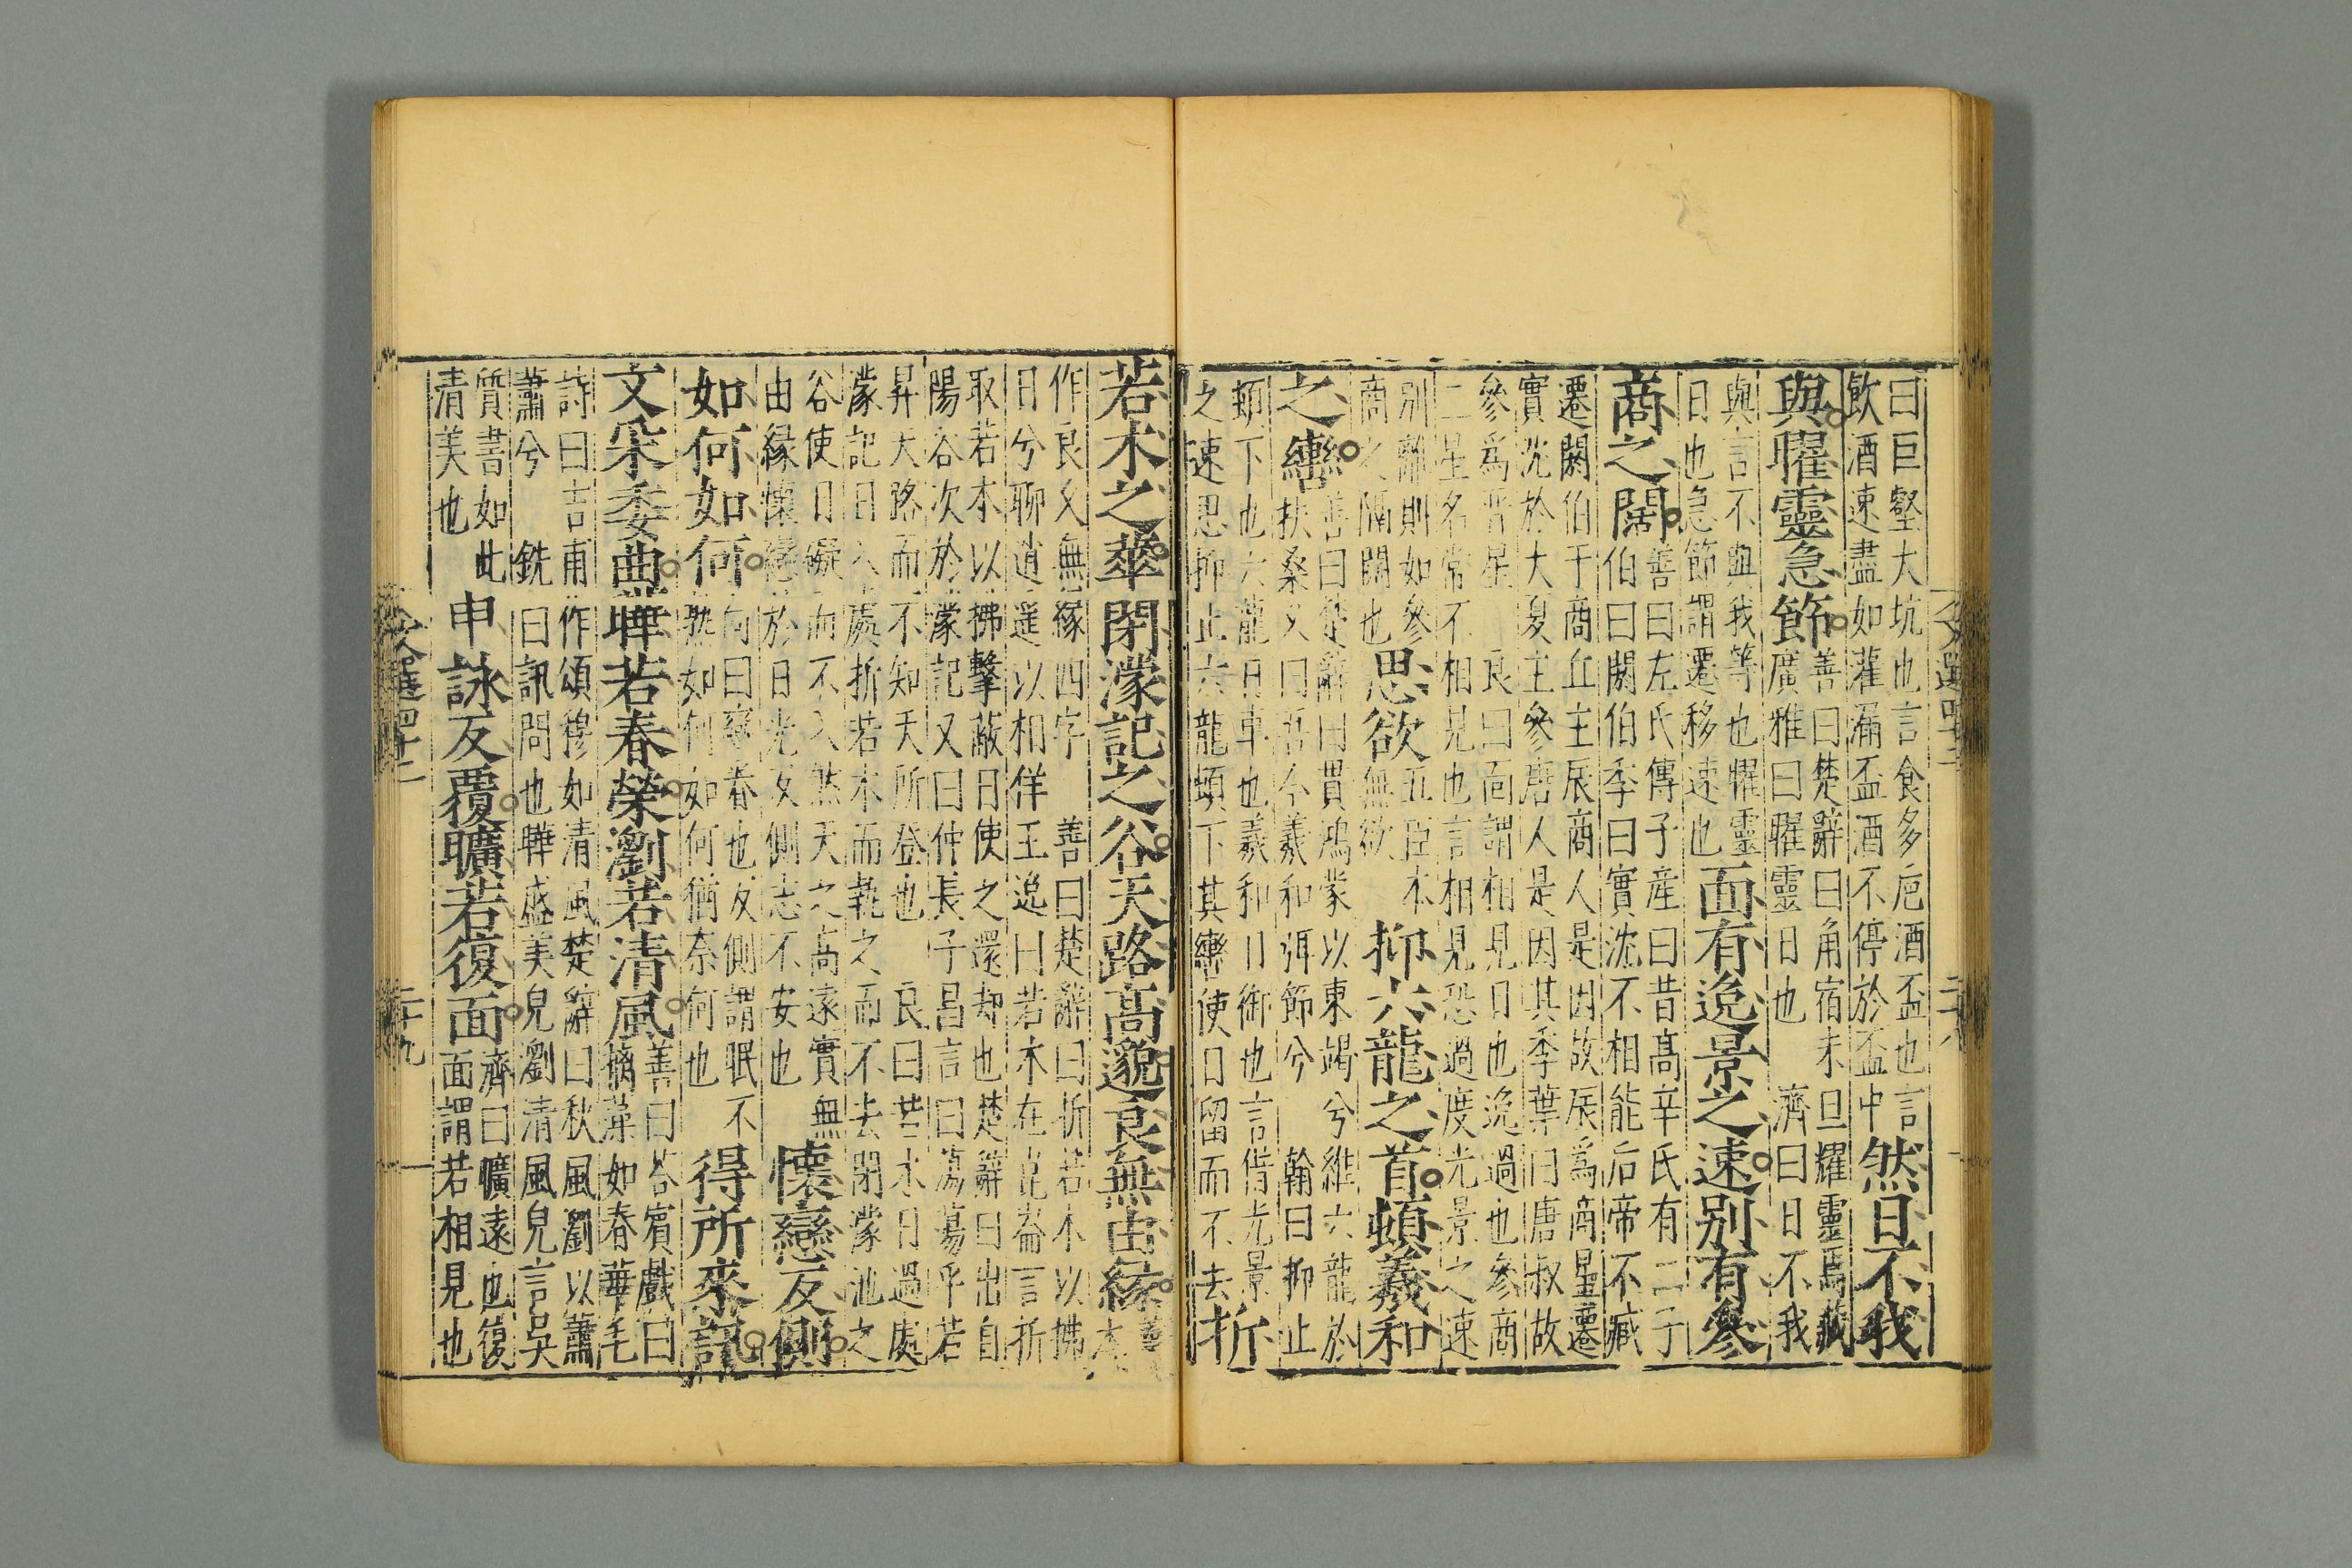 曰巨壑大坑也言食多巵酒盃也言
飲酒速盡如灌漏盃酒不停於盃中
然日不我
與曜靈急節
善曰楚辭曰角宿未旦耀靈焉藏
廣雅曰曜靈日也 濟曰日不我
與言不與我等也曜靈
日也急節謂遷移速也
面有逸景之速别有參
商之闊
善曰左氏傳子産曰昔髙辛氏有二子
伯曰閼伯季曰實沈不相能后帝不臧
遷閼伯于商丘主辰商人是因故辰爲商星遷
實沈於大夏主參唐人是因其季葉曰唐叔故
參爲晋星 良曰面謂相見日也逸過也參商
二星名常不相見也言相見恐過度光景之速
别離則如參
商之隔闊也
思欲
五臣本
無欲
抑六龍之首頓羲和
之轡
善曰楚辭曰貫鴻蒙以東朅兮維六龍於
扶桑又曰吾令羲和弭節兮 翰曰抑止
頓下也六龍日車也羲和日御也言借光景
之速思抑止六龍頓下其轡使日留而不去
折
若木之華閉濛記之谷天路高邈良無由緣
作良久無緣四字 善曰楚辭曰折若木以拂
日兮聊逍遥以相佯王逸曰若木在崑崙言折
取若木以拂擊蔽日使之還却也楚辭曰出自
陽谷次於濛記又曰仲長子昌言曰蕩蕩乎若
昇天路而不知天所登也 良曰若木日過處
濛記日入處折若木而㲉之而不去閉濛池之
谷使日礙而不入然天之高遠實無
由緣懷戀於日光反側志不安也
懷戀反側
如何如何
向曰戀眷也反側謂眠不
如何如何猶奈何也
得所來訊
文采委曲曄若春榮瀏若清風
善曰荅賔戲曰
摛藻如春華毛
詩曰吉甫作頌穆如清風楚辭曰秋風瀏以蕭
蕭兮 銑曰訊問也曄盛美皃瀏清風皃言吴
質書如此
清美也
申詠反覆曠若復面
濟曰曠遠也復
面謂若相見也
文選四十二
二十八
文選四十二
二十九